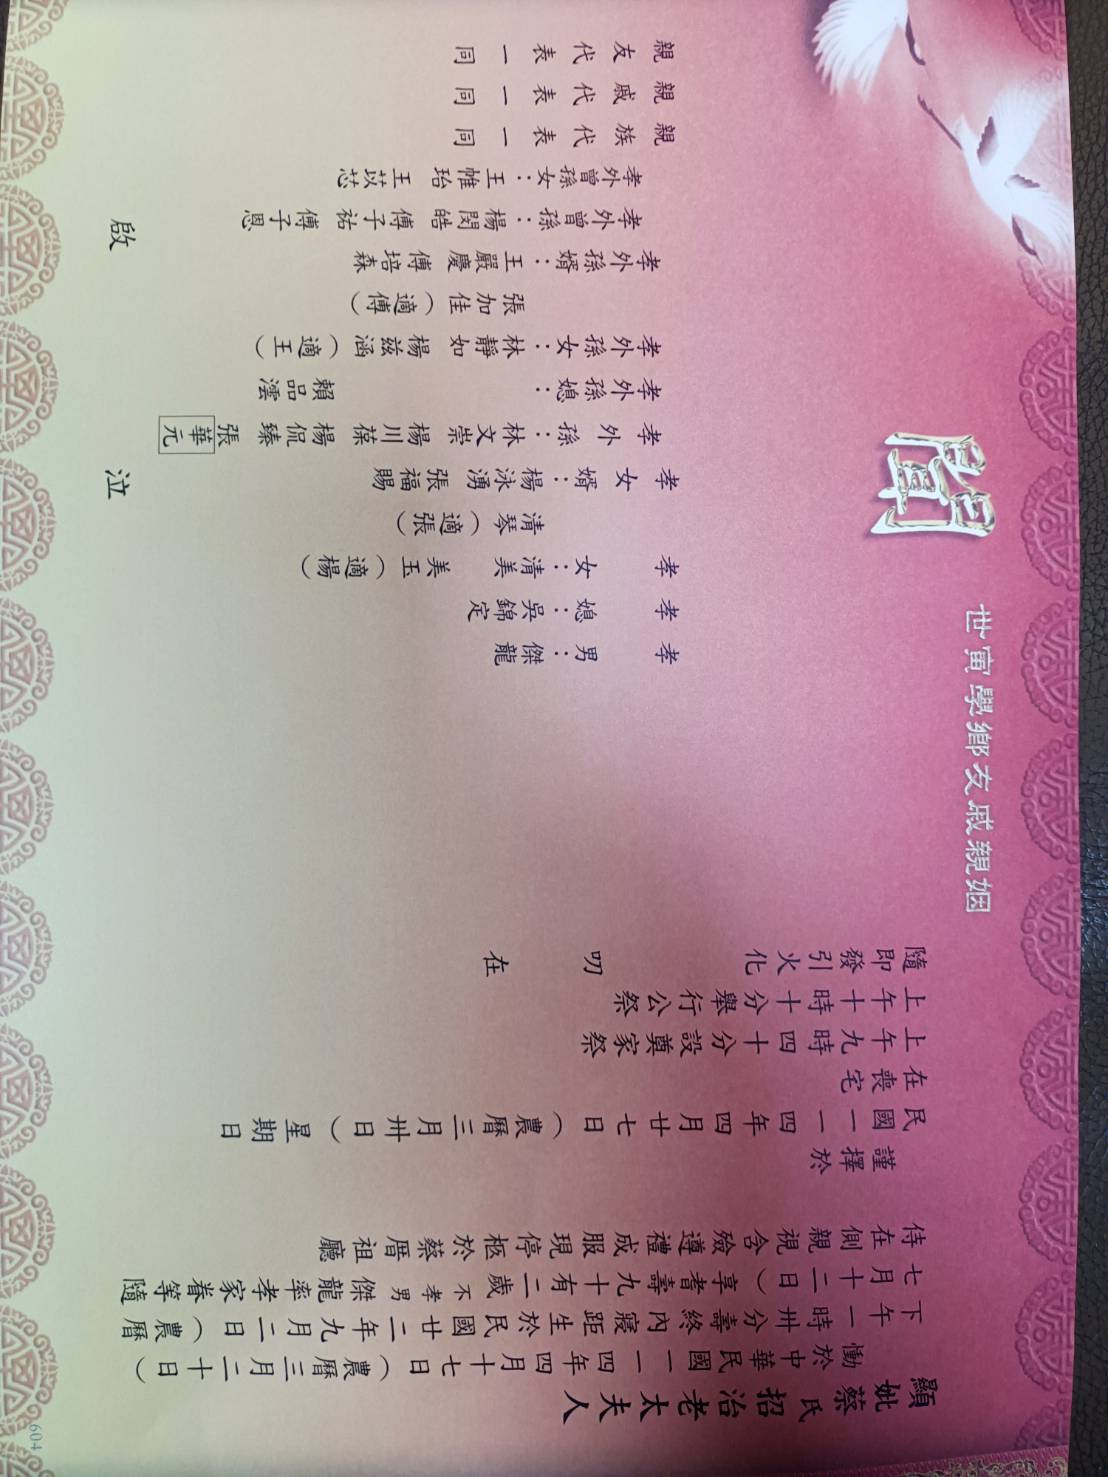 顯妣蔡氏招治老太夫人
慟於中華民國一一四年四月十七日(農曆三月二十日)
下午一時卅分壽終內寢距生於民國廿二年九月二日(農曆
七月十二日)享耆壽九十有二歲不孝男傑龍率孝家眷等隨
侍在側親視含殮遵禮成服現停柩於蔡厝祖廳
謹擇於
民國一一四年四月廿七日(農曆三月卅日)星期日
在喪宅
上午九時四十分設奠家祭
上午十時十分舉行公祭
隨即發引火化
叨在
姻親戚友鄉學寅世
聞
孝男：傑龍
孝媳：吳錦定
孝女：清美 美玉(適楊)
清琴(適張)
孝女婿：楊泳湧 張福賜
孝外孫：林文崇 楊川葆 楊侃臻 張華元
孝外孫媳：賴品澐
孝外孫女：林靜如 楊茲涵(適王)
張加佳(適傅)
孝外孫婿：王嚴慶 傅培森
孝外曾孫：楊閔皓 傅子祐 傅子恩
孝外曾孫女：王惟玿 王苡芯
親族代表一同
親戚代表一同
親友代表一同
泣啟
604